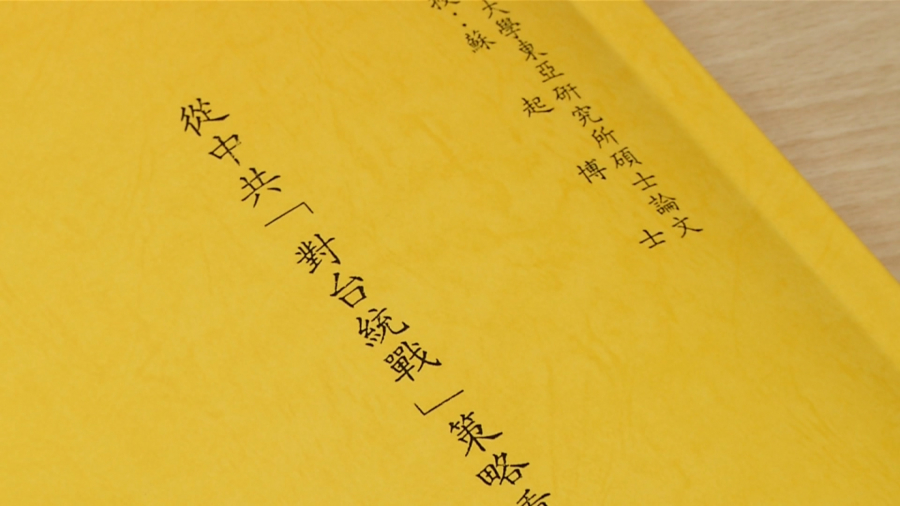 大學東亞研究所碩士論文
授：蘇起博士
從中共「對台統戰」策略看